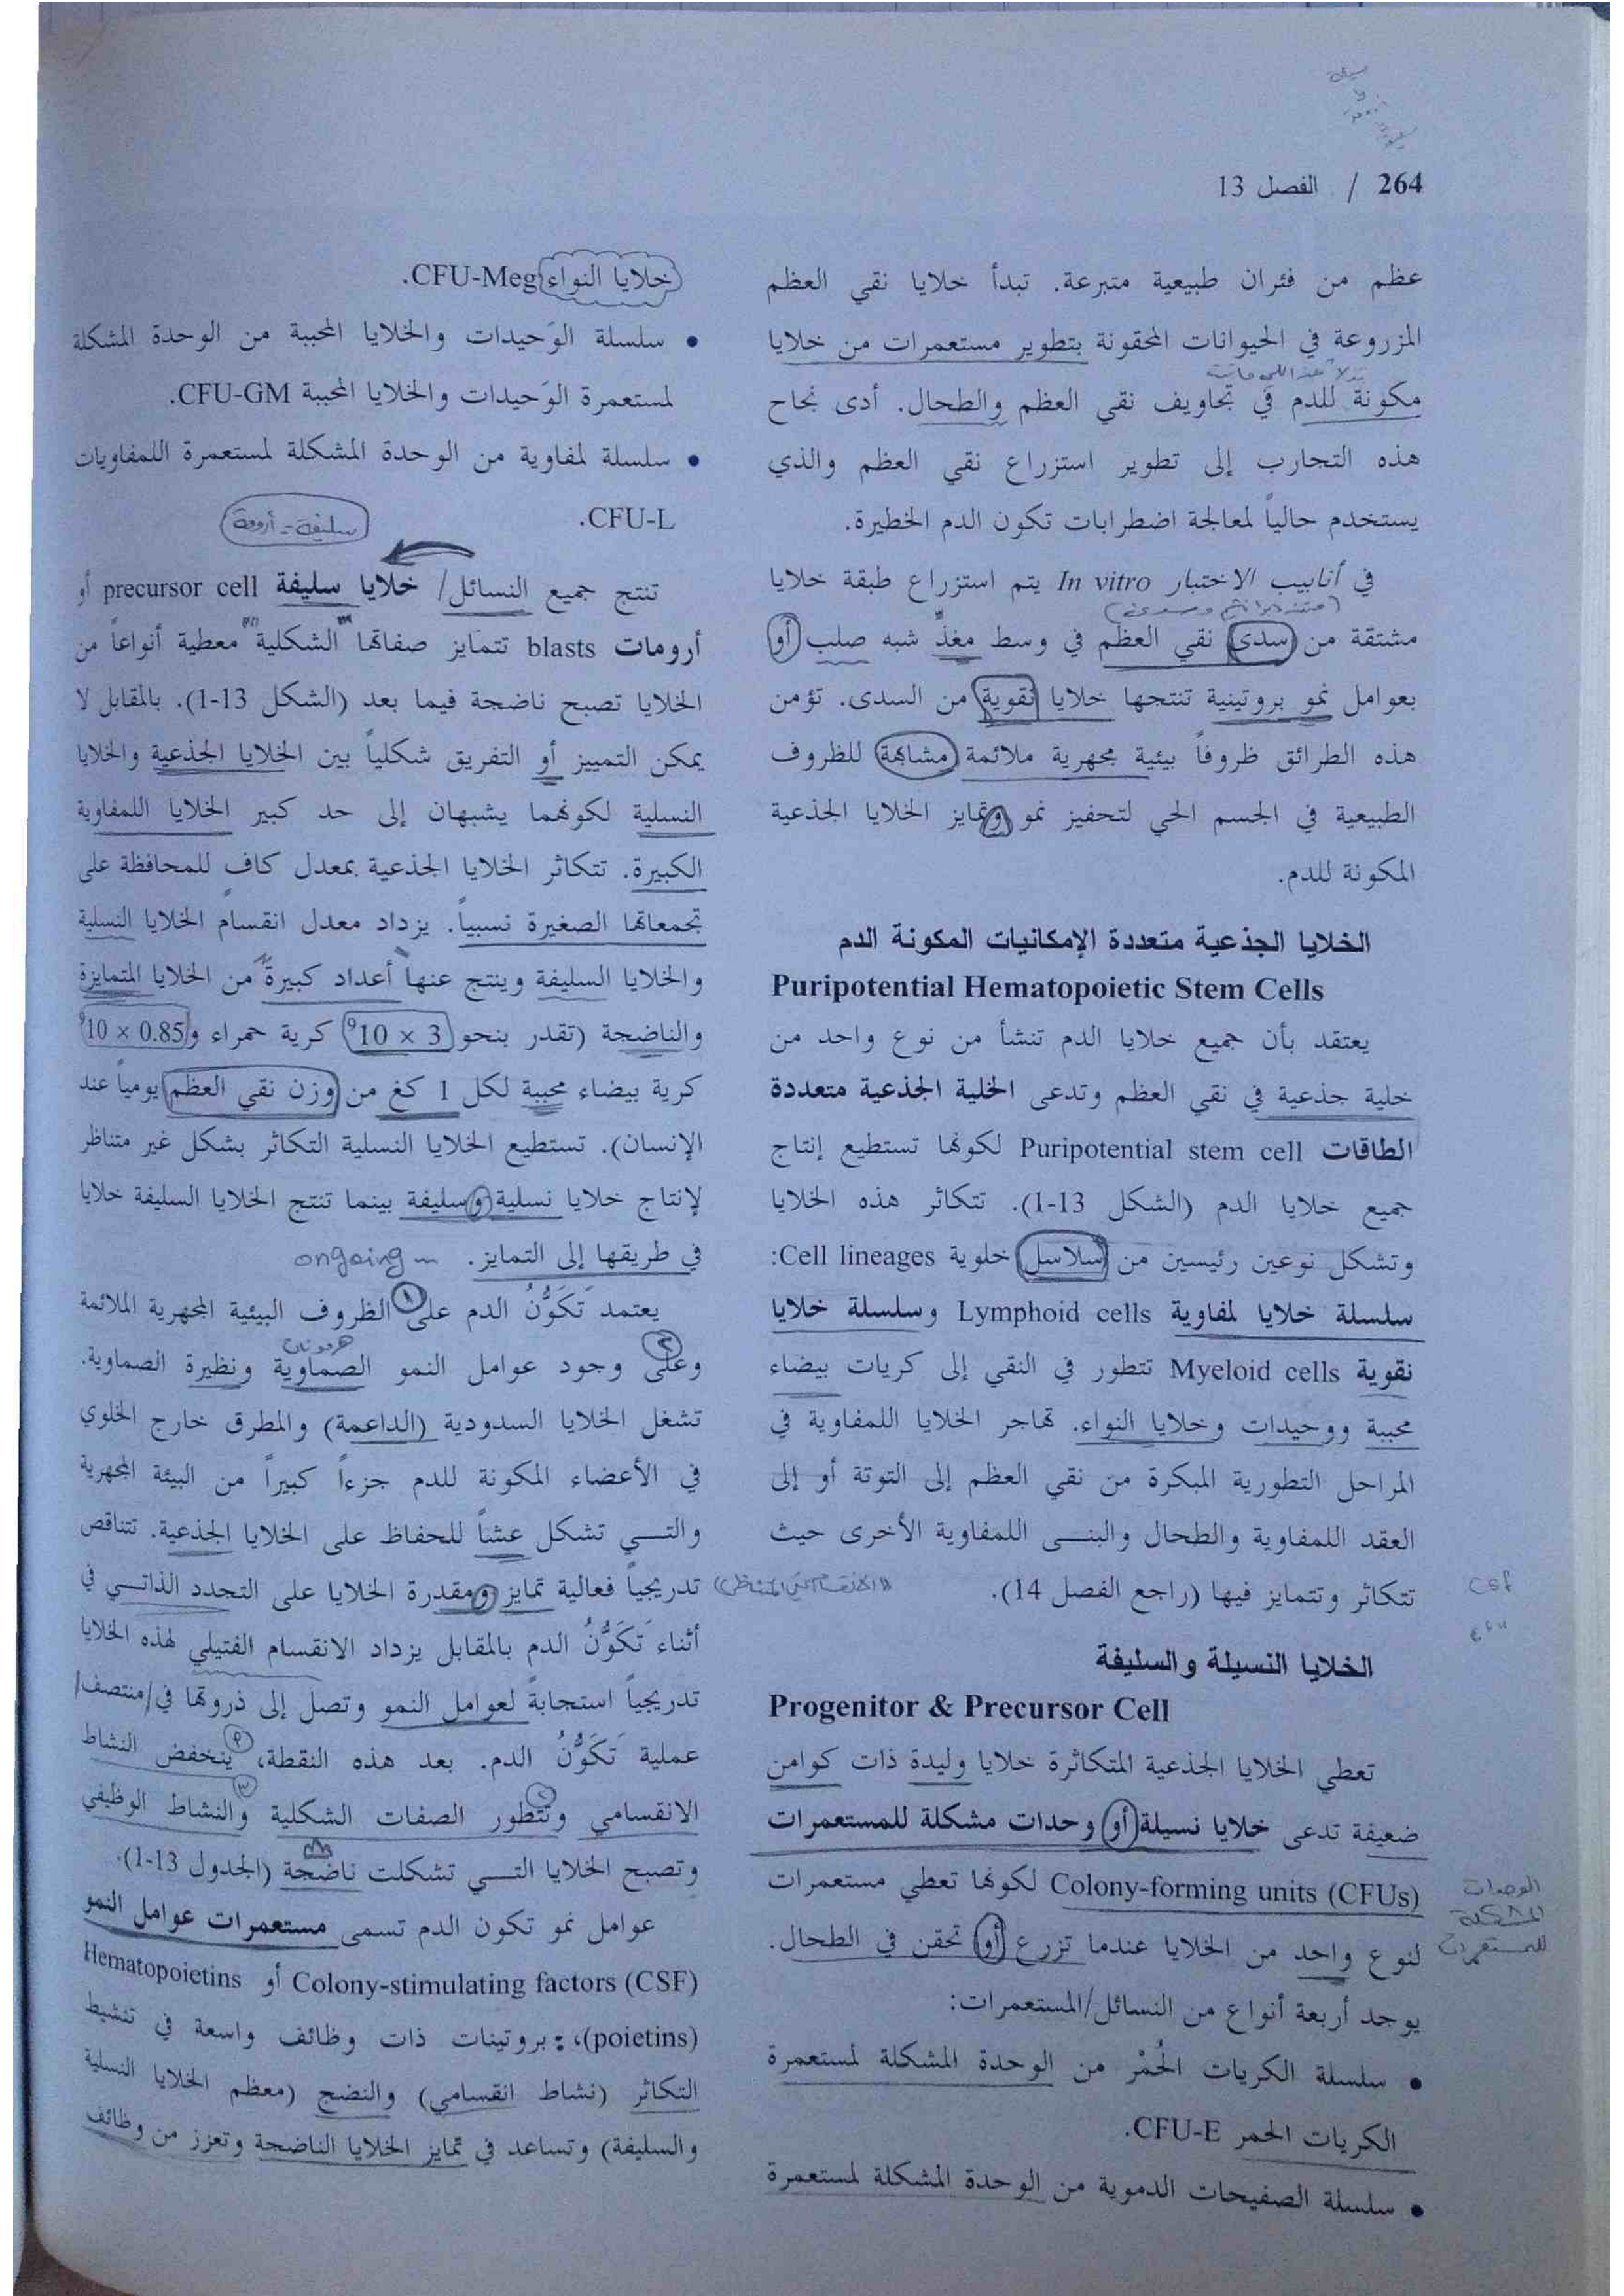 264 / الفصل 13
عظم من فئران طبيعية متبرعة. تبدأ خلايا نقي العظم
المزروعة في الحيوانات المحقونة بتطوير مستعمرات من خلايا
مكونة للدم في تجاويف نقي العظم والطحال. أدى نجاح
هذه التجارب إلى تطوير استزراع نقي العظم والذي
يستخدم حالياً لمعالجة اضطرابات تكون الدم الخطيرة.
في أنابيب الاختبار In vitro يتم استزراع طبقة خلايا
مشتقة من سدى نقي العظم في وسط مغذٍّ شبه صلب أو
بعوامل نمو بروتينية تنتجها خلايا نقوية من السدى. تؤمن
هذه الطرائق ظروفاً بيئية مجهرية ملائمة مشابهة للظروف
الطبيعية في الجسم الحي لتحفيز نمو وتمايز الخلايا الجذعية
المكونة للدم.
الخلايا الجذعية متعددة الإمكانيات المكونة الدم
Puripotential Hematopoietic Stem Cells
يعتقد بأن جميع خلايا الدم تنشأ من نوع واحد من
خلية جذعية في نقي العظم وتدعى الخلية الجذعية متعددة
الطاقات Puripotential stem cell لكونها تستطيع إنتاج
جميع خلايا الدم (الشكل 13-1). تتكاثر هذه الخلايا
وتشكل نوعين رئيسين من سلاسل خلوية Cell lineages:
سلسلة خلايا لمفاوية Lymphoid cells وسلسلة خلايا
نقوية Myeloid cells تتطور في النقي إلى كريات بيضاء
محببة ووحيدات وخلايا النواء. تهاجر الخلايا اللمفاوية في
المراحل التطورية المبكرة من نقي العظم إلى التوتة أو إلى
العقد اللمفاوية والطحال والبنى اللمفاوية الأخرى حيث
تتكاثر وتتمايز فيها (راجع الفصل 14).
الخلايا النسيلة والسليفة
Progenitor & Precursor Cell
تعطي الخلايا الجذعية المتكاثرة خلايا وليدة ذات كوامن
ضعيفة تدعى خلايا نسيلة أو وحدات مشكلة للمستعمرات
Colony-forming units (CFUs) لكونها تعطي مستعمرات
لنوع واحد من الخلايا عندما تزرع أو تحقن في الطحال.
الوحدات
المشكلة
للمستعمرات
يوجد أربعة أنواع من النسائل/المستعمرات:
• سلسلة الكريات الحُمْر من الوحدة المشكلة لمستعمرة
الكريات الحمر CFU-E.
• سلسلة الصفيحات الدموية من الوحدة المشكلة لمستعمرة
خلايا النواء CFU-Meg.
• سلسلة الوَحيدات والخلايا المحببة من الوحدة المشكلة
لمستعمرة الوَحيدات والخلايا المحببة CFU-GM.
• سلسلة لمفاوية من الوحدة المشكلة لمستعمرة اللمفاويات
CFU-L.
سليفة - أرومة
تنتج جميع النسائل/ خلايا سليفة precursor cell أو
أرومات blasts تتمايز صفاتها الشكلية معطية أنواعاً من
الخلايا تصبح ناضجة فيما بعد (الشكل 13-1). بالمقابل لا
يمكن التمييز أو التفريق شكلياً بين الخلايا الجذعية والخلايا
النسلية لكونهما يشبهان إلى حد كبير الخلايا اللمفاوية
الكبيرة. تتكاثر الخلايا الجذعية بمعدل كافٍ للمحافظة على
تجمعاتها الصغيرة نسبياً. يزداد معدل انقسام الخلايا النسلية
والخلايا السليفة وينتج عنها أعداد كبيرة من الخلايا المتمايزة
والناضجة (تقدر بنحو 3 × 10⁹ كرية حمراء و0.85 × 10⁹
كرية بيضاء محببة لكل 1 كغ من وزن نقي العظم يومياً عند
الإنسان). تستطيع الخلايا النسلية التكاثر بشكل غير متناظر
لإنتاج خلايا نسلية وسليفة بينما تنتج الخلايا السليفة خلايا
في طريقها إلى التمايز. ongoing
يعتمد تَكَوُّنُ الدم على ١ الظروف البيئية المجهرية الملائمة
هرمونات
وعلى ٢ وجود عوامل النمو الصماوية ونظيرة الصماوية.
تشغل الخلايا السدودية (الداعمة) والمطرق خارج الخلوي
في الأعضاء المكونة للدم جزءاً كبيراً من البيئة المجهرية
والتي تشكل عشاً للحفاظ على الخلايا الجذعية. تتناقص
تدريجياً فعالية تمايز ومقدرة الخلايا على التجدد الذاتي في
أثناء تَكَوُّنُ الدم بالمقابل يزداد الانقسام الفتيلي لهذه الخلايا
تدريجياً استجابةً لعوامل النمو وتصل إلى ذروتها في/منتصف/
عملية تَكَوُّنُ الدم. بعد هذه النقطة، ينخفض النشاط
الانقسامي وتتطور الصفات الشكلية والنشاط الوظيفي
وتصبح الخلايا التي تشكلت ناضجة (الجدول 13-1).
عوامل نمو تكون الدم تسمى مستعمرات عوامل النمو
Colony-stimulating factors (CSF) أو Hematopoietins
(poietins)،: بروتينات ذات وظائف واسعة في تنشيط
التكاثر (نشاط انقسامي) والنضج (معظم الخلايا النسلية
والسليفة) وتساعد في تمايز الخلايا الناضجة وتعزز من وظائف
csf